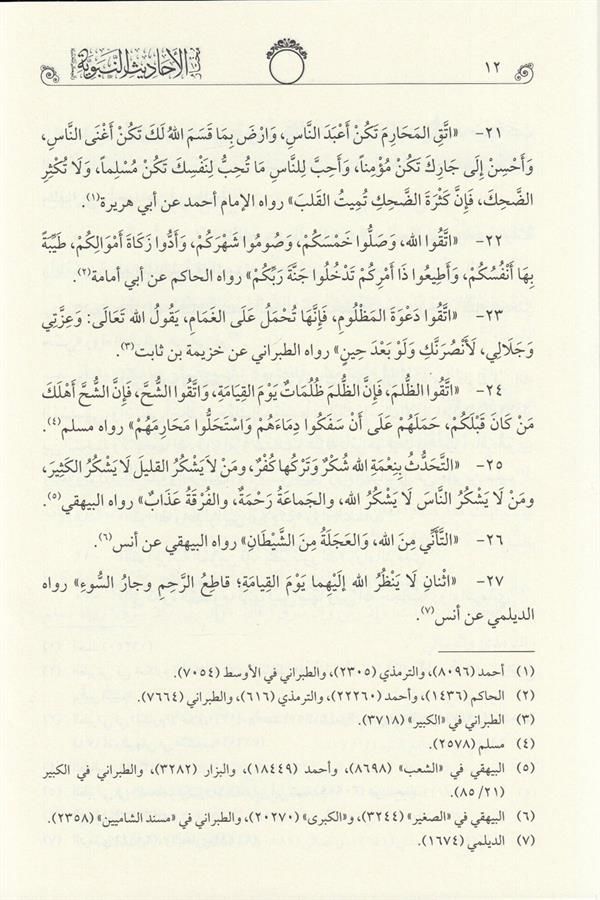 ١٢ الأحاديث النبوية
٢١- «اتَّقِ المَحَارِمَ تَكُنْ أَعْبَدَ النَّاسِ، وَارْضَ بِمَا قَسَمَ اللهُ لَكَ تَكُنْ أَغْنَى النَّاسِ،
وَأَحْسِنْ إِلَى جَارِكَ تَكُنْ مُؤْمِناً، وَأَحِبَّ لِلنَّاسِ مَا تُحِبُّ لِنَفْسِكَ تَكُنْ مُسْلِماً، وَلَا تُكْثِرِ
الضَّحِكَ، فَإِنَّ كَثْرَةَ الضَّحِكِ تُمِيتُ القَلبَ» رواه الإمام أحمد عن أبي هريرة(١).
٢٢- «اتَّقُوا الله، وَصَلُّوا خَمْسَكُمْ، وَصُومُوا شَهْرَكُمْ، وَأَدُّوا زَكَاةَ أَمْوَالِكُمْ، طَيِّبَةً
بِهَا أَنْفُسُكُمْ، وَأَطِيعُوا ذَا أَمْرِكُمْ تَدْخُلُوا جَنَّةَ رَبِّكُمْ» رواه الحاكم عن أبي أمامة(٢).
٢٣- «اتَّقُوا دَعْوَةَ المَظْلُومِ، فَإِنَّهَا تُحْمَلُ عَلَى الغَمَامِ، يَقُولُ الله تَعَالَى: وَعِزَّتِي
وَجَلَالِي، لَأَنْصُرَنَّكِ وَلَوْ بَعْدَ حِينٍ» رواه الطبراني عن خزيمة بن ثابت(٣).
٢٤- «اتَّقُوا الظُّلمَ، فَإِنَّ الظُّلمَ ظُلُمَاتٌ يَوْمَ القِيَامَةِ، وَاتَّقُوا الشُّحَّ، فَإِنَّ الشُّحَّ أَهْلَكَ
مَنْ كَانَ قَبْلَكُمْ، حَمَلَهُمْ عَلَى أَنْ سَفَكُوا دِمَاءَهُمْ وَاسْتَحَلُّوا مَحَارِمَهُمْ» رواه مسلم(٤).
٢٥- «التَّحَدُّثُ بِنِعْمَةِ الله شُكْرٌ وَتَرْكُها كُفْرٌ، ومَنْ لَا يَشْكُرُ القليلَ لَا يَشْكُرُ الكَثِيرَ،
ومَنْ لَا يَشْكُرُ النَّاسَ لَا يَشْكُرُ الله، والجَمَاعَةُ رَحْمَةٌ، والفُرْقَةُ عَذَابٌ» رواه البيهقي(٥).
٢٦- «التَّأَنِّي مِنَ الله، وَالعَجَلَةُ مِنَ الشَّيْطَانِ» رواه البيهقي عن أنس(٦).
٢٧- «اثْنانِ لَا يَنْظُرُ الله إِلَيْهِما يَوْمَ القِيَامَةِ؛ قاطِعُ الرَّحِمِ وجارُ السُّوءِ» رواه
الديلمي عن أنس(٧).
(١) أحمد (٨٠٩٦)، والترمذي (٢٣٠٥)، والطبراني في الأوسط (٧٠٥٤).
(٢) الحاكم (١٤٣٦)، وأحمد (٢٢٢٦٠)، والترمذي (٦١٦)، والطبراني (٧٦٦٤).
(٣) الطبراني في «الكبير» (٣٧١٨).
(٤) مسلم (٢٥٧٨).
(٥) البيهقي في «الشعب» (٨٦٩٨)، وأحمد (١٨٤٤٩)، والبزار (٣٢٨٢)، والطبراني في الكبير
(٢١/ ٨٥).
(٦) البيهقي في «الصغير» (٣٢٤٤)، و«الكبرى» (٢٠٢٧٠)، والطبراني في «مسند الشاميين» (٢٣٥٨).
(٧) الديلمي (١٦٧٤).